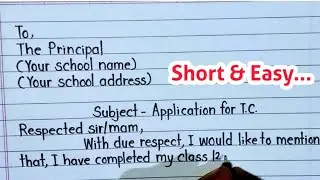 To,
The Principal
(Your school name)
(Your school address)
Short & Easy...
Subject - Application for T.C.
Respected sir/mam,
With due respect, I would like to mention
that, I have completed my class 12